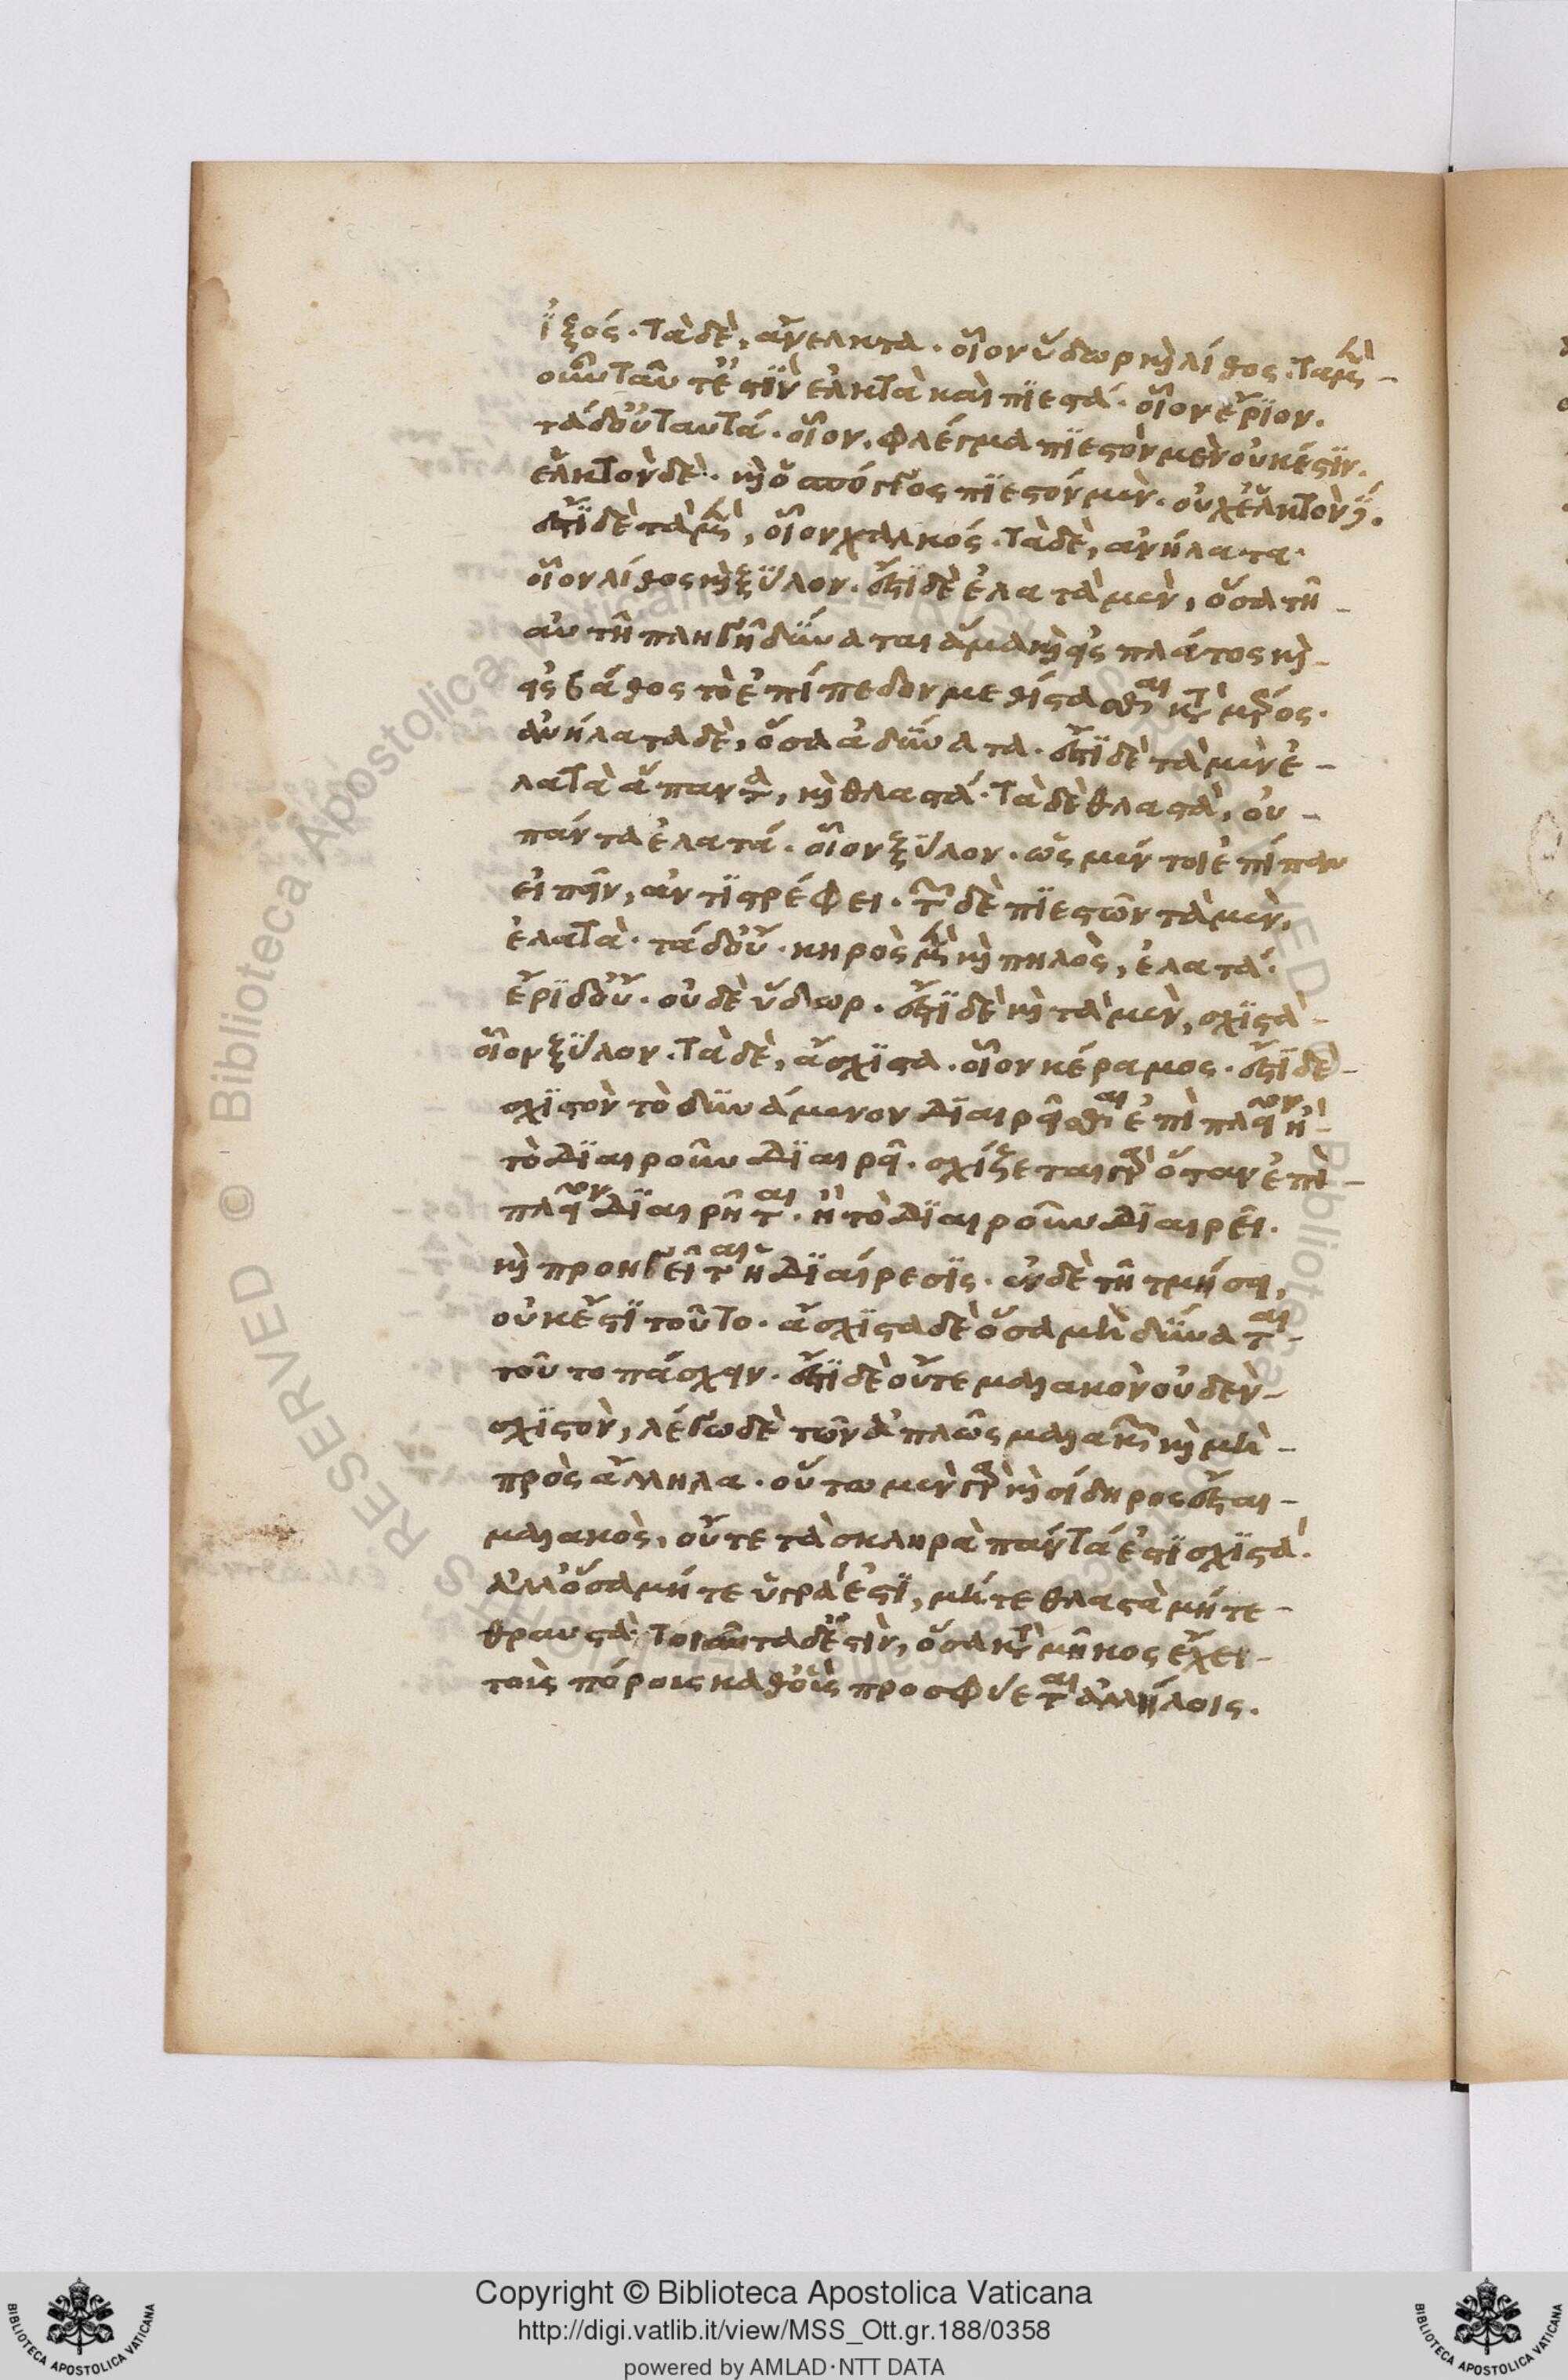 ἰξός. τὰ δὲ, ἄνελκτα. οἷον ὕδωρ καὶ λίθος. τὰ μὲν
οὖν ταῦτ' ἐστὶν ἑλκτὰ καὶ πιεστά. οἷον ἔριον.
τὰ δ' οὐ ταυτά. οἷον, φλέγμα πιεστὸν μὲν οὐκ ἔστιν.
ἑλκτὸν δέ. καὶ ὁ σπόγγος πιεστὸν μέν. οὐχ ἑλκτὸν δέ.
ἔστι δὲ τὰ μὲν, οἷον χαλκός. τὰ δὲ, ἀνήλατα.
οἷον λίθος καὶ ξύλον. ἔστι δὲ ἐλατὰ μὲν, ὅσα τῇ
αὐτῇ πληγῇ δύναται ἅμα καὶ εἰς πλάτος καὶ
εἰς βάθος τὸ ἐπίπεδον μεθίστασθαι κατὰ μέρος.
ἀνήλατα δὲ, ὅσα ἀδύνατα. ἔστι δὲ τὰ μὲν ἐ-
λατὰ ἅπαντα, καὶ θλαστά. τὰ δὲ θλαστὰ, οὐ
πάντα ἐλατά. οἷον ξύλον. ὡς μέντοι ἐπίπαν
εἰπεῖν, ἀντιστρέφει. τῶν δὲ πιεστῶν τὰ μὲν,
ἐλατά. τὰ δ' οὔ. κηρὸς μὲν καὶ πηλὸς, ἐλατά.
ἔρι δ' οὔ. οὐδὲ ὕδωρ. ἔστι δὲ καὶ τὰ μὲν, σχιστὰ
οἷον ξύλον. τὰ δὲ, ἄσχιστα. οἷον κέραμος. ἔστι δὲ
σχιστὸν τὸ δυνάμενον διαιρεῖσθαι ἐπὶ πλεῖον ἢ
τὸ διαιροῦν διαιρεῖ. σχίζεται γὰρ ὅταν ἐπὶ
πλεῖον διαιρῆται. ἢ τὸ διαιροῦν διαιρεῖ.
καὶ προηγεῖται ἡ διαίρεσις. ἐν δὲ τῇ τμήσει,
οὐκ ἔστι τοῦτο. ἄσχιστα δὲ ὅσα μὴ δύναται
τοῦτο πάσχειν. ἔστι δὲ οὔτε μαλακὸν οὐδὲν
σχιστὸν, λέγω δὲ τῶν ἁπλῶς μαλακῶν καὶ μὴ
πρὸς ἄλληλα. οὕτω μὲν γὰρ καὶ σίδηρος ἔσται
μαλακὸς, οὔτε τὰ σκληρὰ πάντά ἐστι σχιστά.
ἀλλ' ὅσα μήτε ὑγρά ἐστι, μήτε θλαστὰ μήτε
θραυστά. τοιαῦτα δ' ἐστὶν, ὅσα κατὰ μῆκος ἔχει
τοὺς πόρους καθ' οὓς προσφύεται ἀλλήλοις.
Copyright © Biblioteca Apostolica Vaticana
http://digi.vatlib.it/view/MSS_Ott.gr.188/0358
powered by AMLAD·NTT DATA